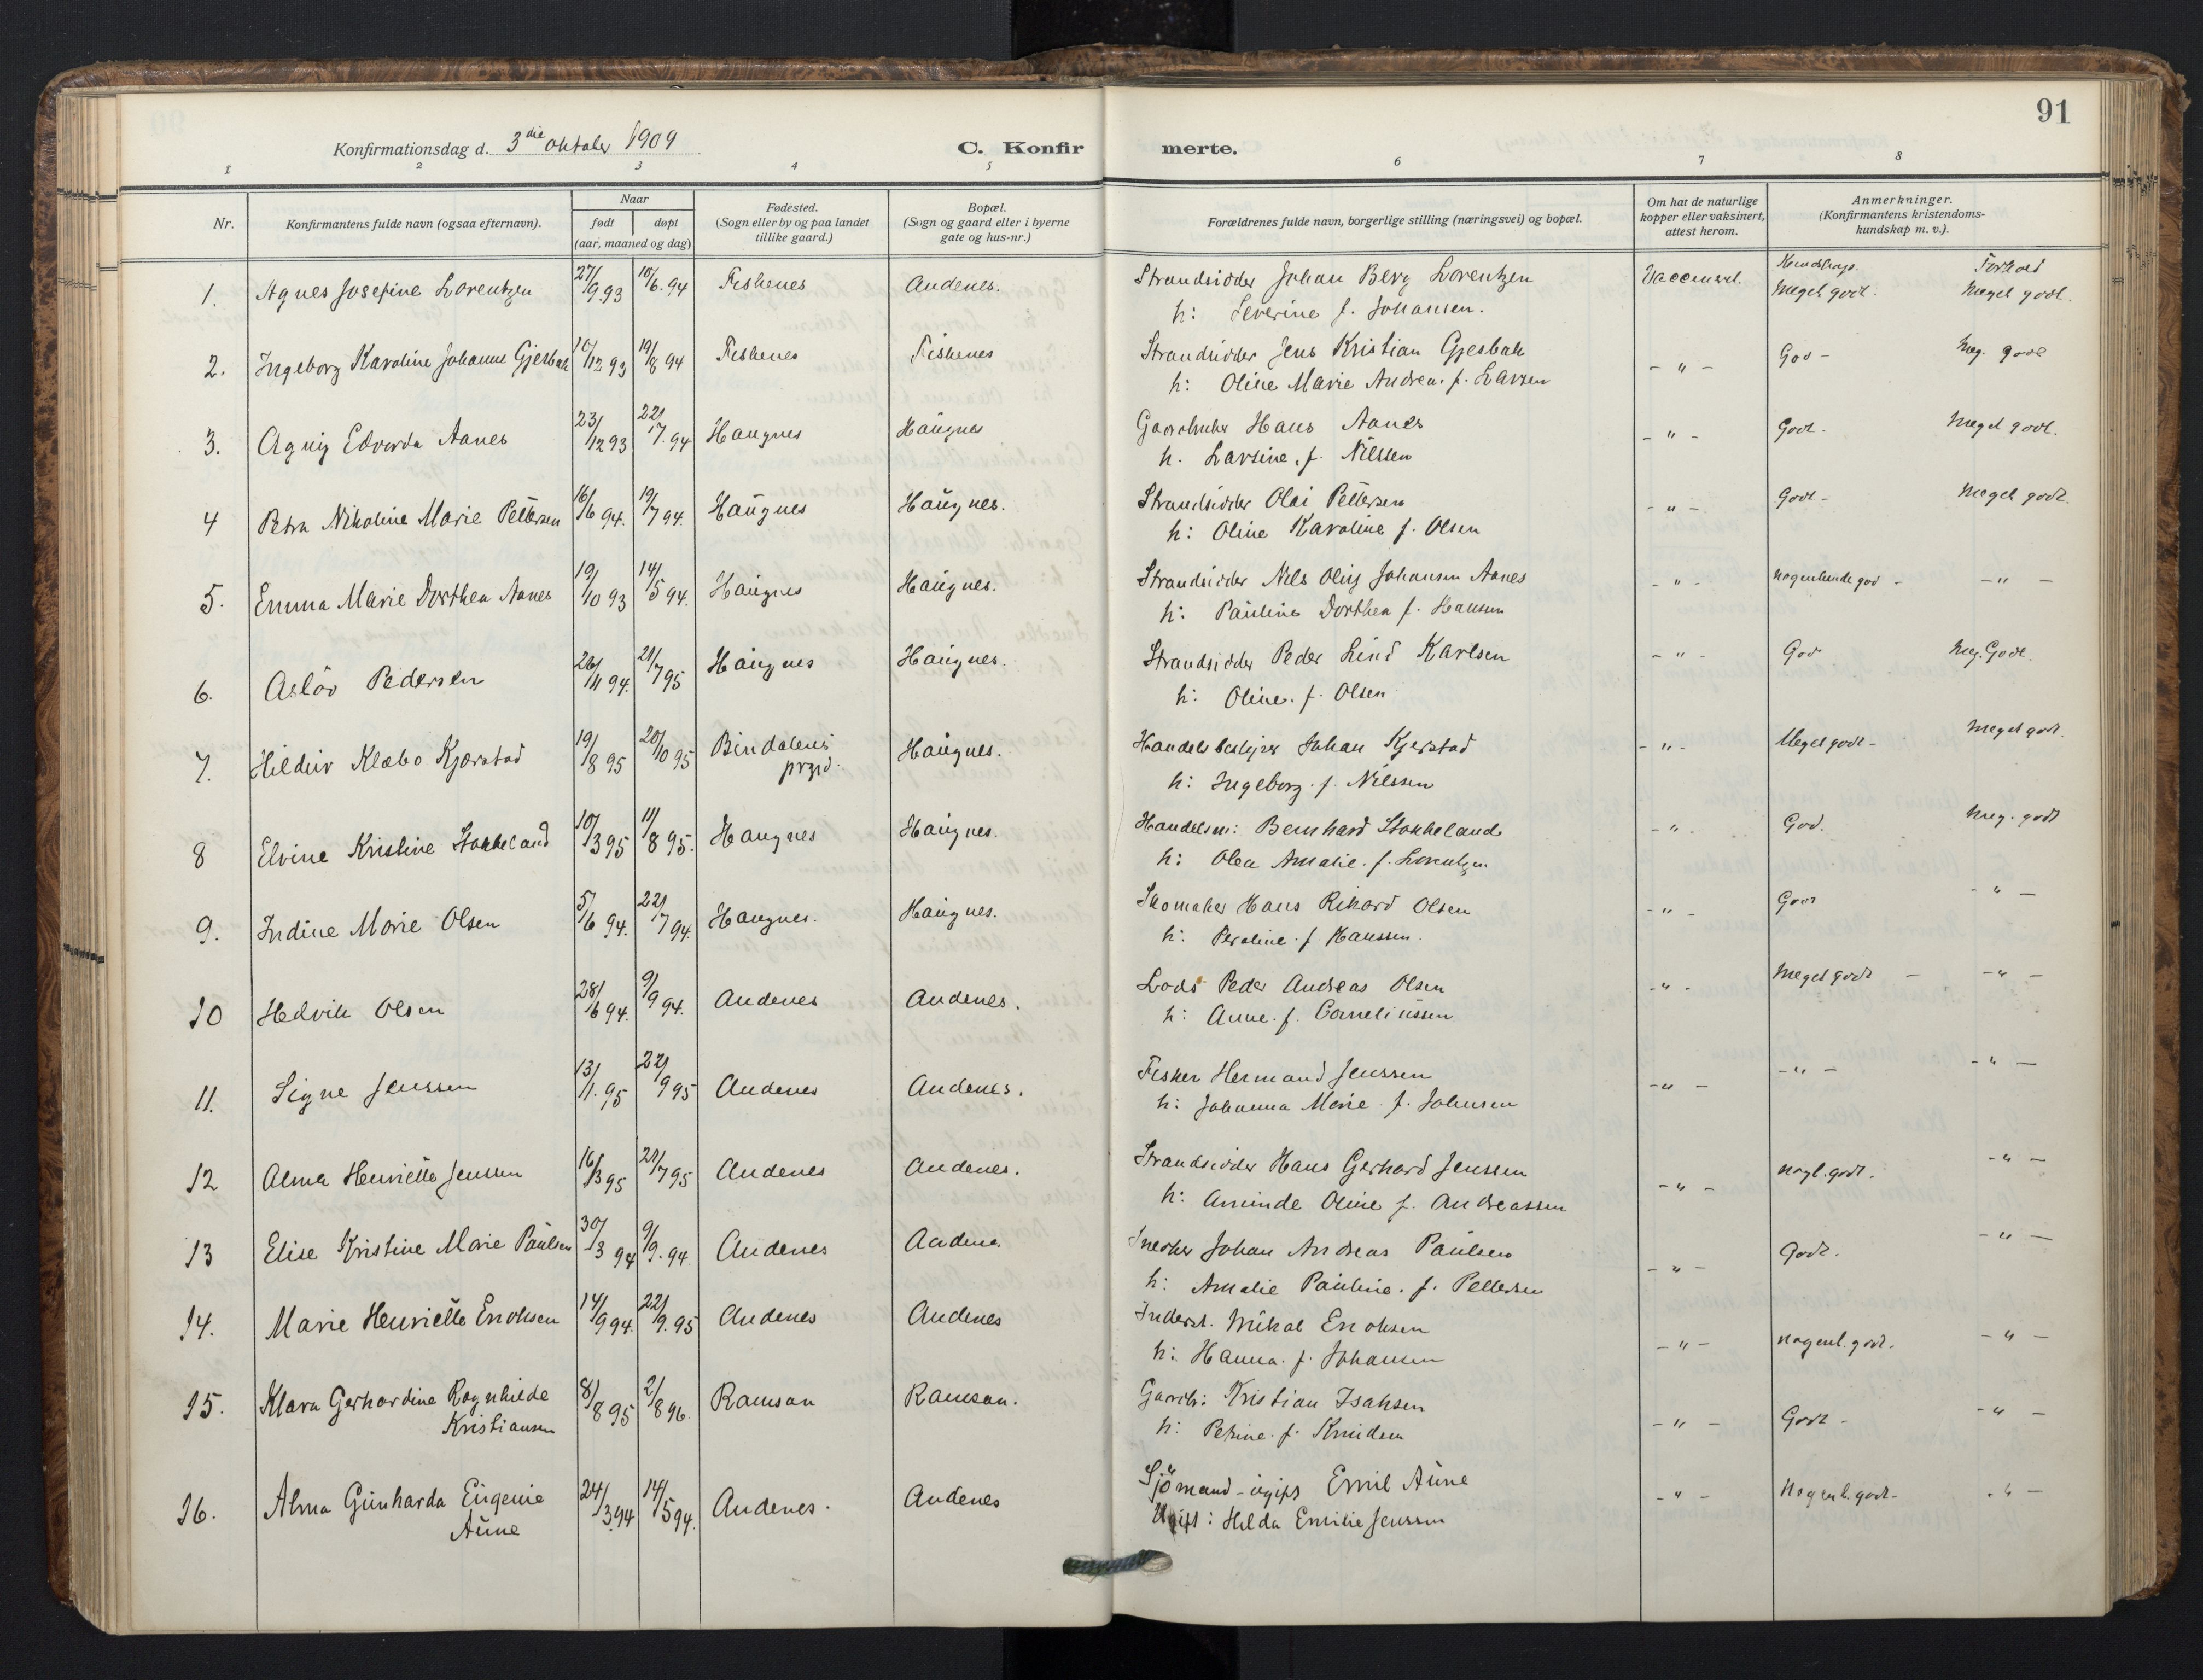 91
Konfirmationsdag d. 3die oktober 1909
C. Konfir merte.
1 2 3 4 5 6 7 8
Nr.
Konfirmantens fulde navn (ogsaa efternavn).
Naar
født døpt
(aar, maaned og dag)
Fødested.
(Sogn eller by og paa landet
tillike gaard.)
Bopæl.
(Sogn og gaard eller i byerne
gate og hus-nr.)
Forældrenes fulde navn, borgerlige stilling (næringsvei) og bopæl.
Om hat de naturlige
kopper eller vaksinert,
attest herom.
Anmerkninger.
(Konfirmantens kristendoms-
kundskap m. v.).
Kundskap. Forhold
1. Agnes Josefine Lorentzen 27/9.93 10/6.94 Fiskenes Andenes. Strandsidder Johan Berg Lorentzen Vaccinert. Meget godt. Meget godt.
h: Severine f. Johansen.
2. Ingeborg Karoline Johanne Gjesbak 10/12 93 19/8 94 Fiskenes Fiskenes Strandsidder Jens Kristian Gjesbak - " - God - Meg. godt
h: Oline Marie Andrea. f. Larsen
3. Agnig Edvarda Aanes 23/12 93 22/7.94 Haugnes Haugnes Gaardbruker Hans Aanes - " - Godt. Meget godt.
h. Larsine. f. Nilssen
4 Petra Nikoline Marie Pettersen 16/6 94. 19/7 94. Haugnes Haugnes. Strandsidder Olai Pettersen - " - Godt - Meget godt.
h: Oline Karoline f. Olsen
5. Emma Marie Dorthea Aanes 19/10 93 14/5 94. Haugnes Haugnes. Strandsidder Nils Oluf Johansen Aanes - " - nogenlunde god - - " -
h: Pauline Dorthea f. Hansen
6. Aslöv Pedersen 26/11 94. 21/7 95 Haugnes Haugnes. Strandsidder Peder Lind Karlsen - " - God Meg. Godt.
h: Oline. f. Olsen
7. Hildur Klæbo Kjærstad 19/8 95 20/10 95 Bindalens Haugnes. Handelsbestyrer Johan Kjerstad - " - Meget godt - Meget godt.
prgjd.
h: Ingeborg. f. Nilssen
8 Elvine Kristine Stokkeland 10/3 95 11/8 95. Haugnes Haugnes. Handelsm: Bernhard Stokkeland - " - God. Meg. godt
h: Olea Amalie. f. Lorentzen
9. Indine Marie Olsen 5/6 94. 22/7 94. Haugnes. Haugnes. Skomaker Hans Rikard Olsen - " - Godt - " -
h: Peroline. f. Hanssen.
10 Hedvik Olsen 28/6 94. 9/9 94. Andenes Andenes. Lods Peder Andreas Olsen - " - Meget godt - - " -
h: Anne. f. Corneliussen
11. Signe Jenssen 13/1. 95 22/9 95 Andenes Andenes. Fisker Hermand Jenssen - " - - " - - " -
h: Johanna Marie f. Johnsen
12 Alma Henriette Jenssen 16/3 95 21/7 95 Andenes Andenes. Strandsidder Hans Gerhard Jenssen - " - nogl. godt. - " -
h: Aminde Oline f. Andreassen
13 Elise Kristine Marie Paulsen 30/3 94 9/9. 94. Andenes Andenes Snedker Johan Andreas Paulsen - " - Godt. - " -
h: Amalie Pauline. f. Pettersen
14. Marie Henriette Enoksen 14/9 94. 22/9. 95 Andenes Andenes Inderst. Mikal Enoksen - " - nogenl. godt. - " -
h: Hanna. f. Johansen
15. Klara Gerhardine Ragnhilde 8/8 95 2/8 96. Ramsan Ramsan. Gaardb: Kristian Isaksen - " - Godt - - " -
Kristiansen
h: Petrine. f. Knudsen
16. Alma Gunharda Eugenie 24/3.94 14/5 94. Andenes. Andenes Sjömand - ugift Emil Aune - " - Nogenl. godt - - " -
Aune
Ugift: Hilda Emilie Jenssen